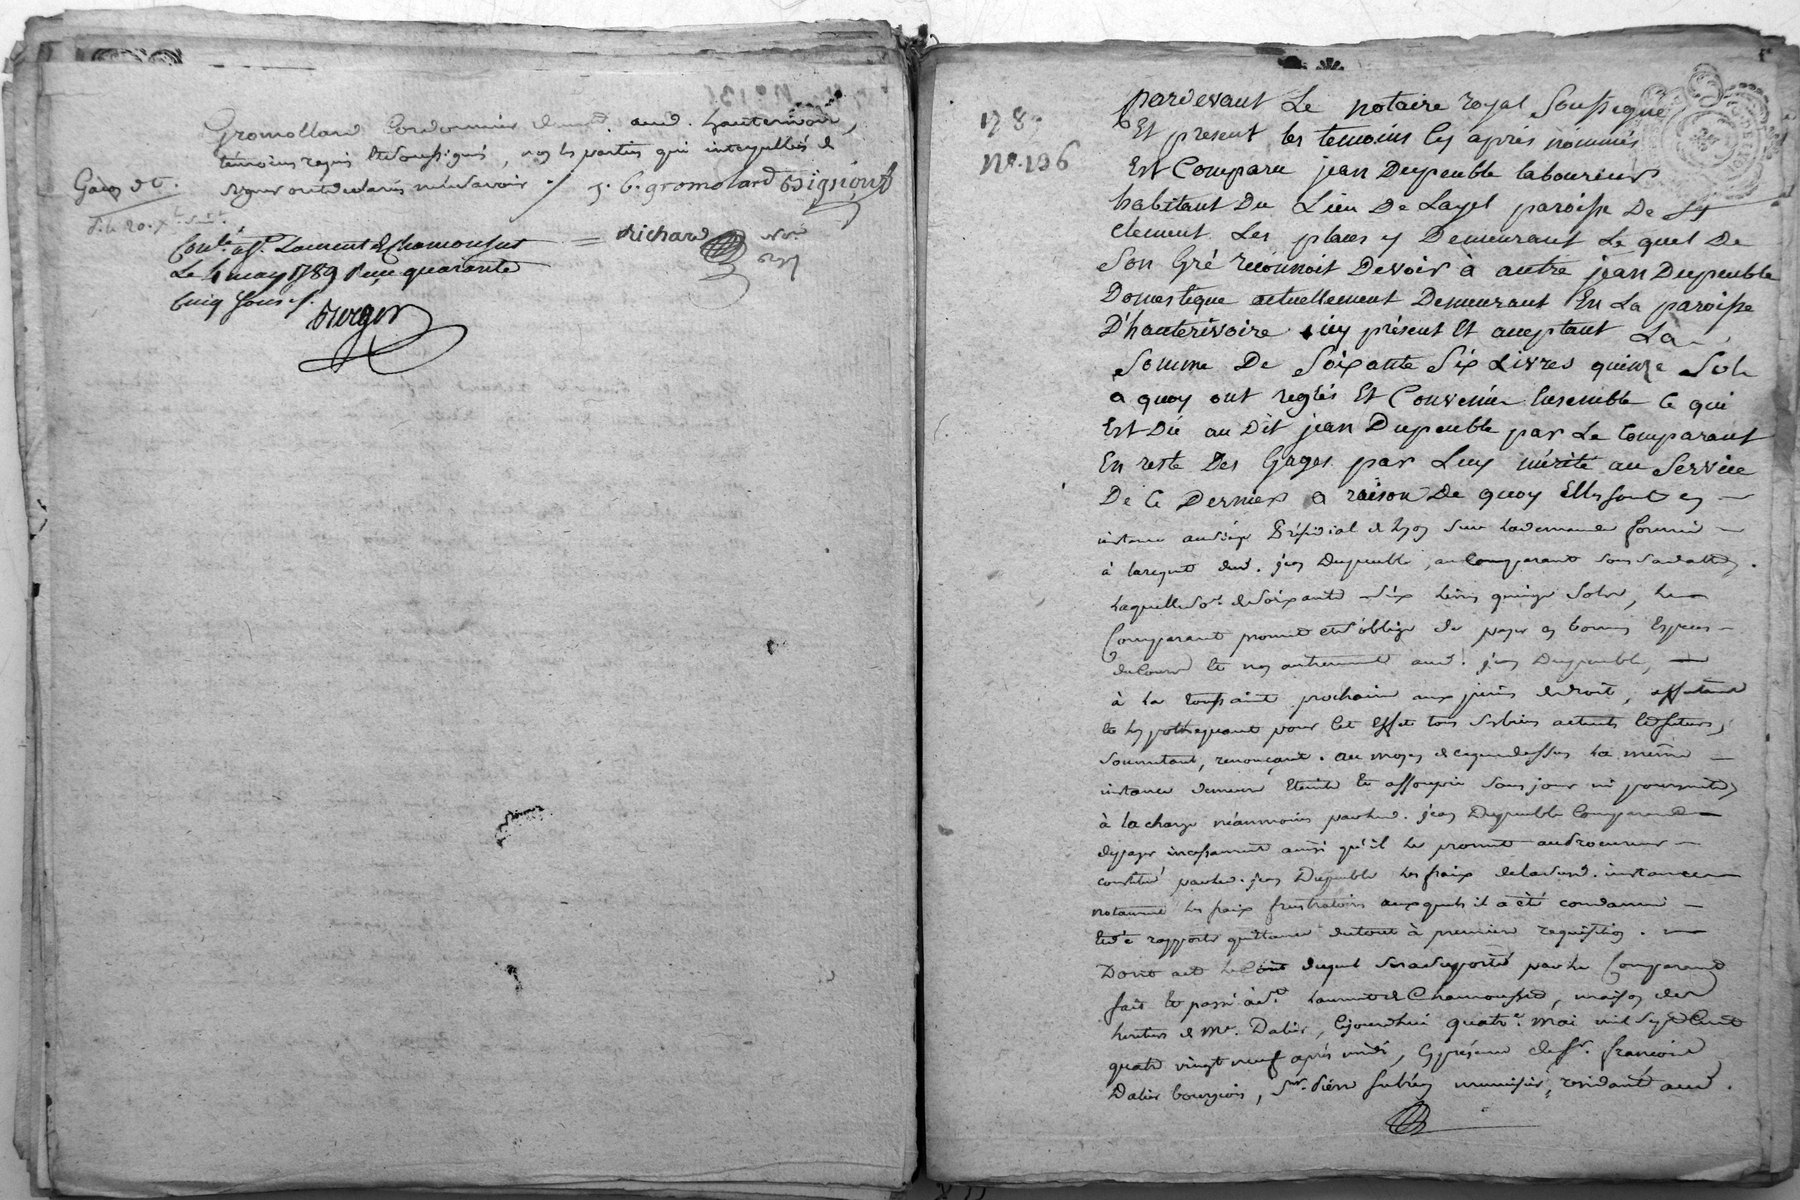 Gromolland Cordonnier aud. hauterivoire,
témoins requis et soussignés, non les parties qui interpellées de
signer ont declarés ne le savoir ./. J. B. gromolard
Richard
Con.lé à S.t Laurent de Chamousset
Le 4 may 1789 Reçu quarante
Cinq Sous ./.
Berger
1789
N°. 136
pardevant Le notaire royal Soussigné
Et present les temoins Cy après nommés
Est Comparu jean Dupeuble laboureur
habitant Du Lieu De Layel paroisse De St
Clement Les places y Demeurant Le quel De
Son Gré reconnoit Devoir à autre jean Dupeuble
Domestique actuellement Demeurant En La paroisse
D'hauterivoire icy présent Et aceptant La
Somme De Soixante Six Livres quinze Sols
a quoy ont reglés Et Convenu Ensemble Ce qui
Est Dû au Dit jean Dupeuble par Le Comparant
En reste Des Gages par Luy mérité au Service
De Ce Dernier a raison De quoy Elles sont en
instance au siége Présidial de Lyon sur la demande formée
à la reqûte dud. jean Dupeuble, au Comparant
Laquelle so.e de soixante Six Livres quinze Sols, Le
Comparant promet et s'oblige de payer en bonnes Especes
de Cours et non autrement aud. jean Dupeuble,
à la toussaint prochaine aux peines de droit, affectant
et hypothequant pour Cet Effet tous ses biens actuels et futurs,
soumettant, renonçant. au moyen de ce que dessus la même
instance demeure Eteinte et assoupie sans jour ni poursuites
à la charge néanmoins par led. jean Dupeuble Comparant
de payer incessament ainsi qu'il le promet au procureur
constitué par led. jean Dupeuble les fraix de lad. instance
notamment les fraix frustratoires auxquels il a été condamné
et d'en rapporter quittance du tout à premiere requisition.
Dont acte le Cout duquel sera suporté par le Comparant
fait et passé à S.t Laurent de Chamousset, maison des
heritiers de Me. Dalier, Cejourdhui quatre mai mil Sept Cent
quatre vingt neuf après midi, En présence de Sr. françois
Dalier bourgeois, Sr. Pierre menuisier, residant aud.